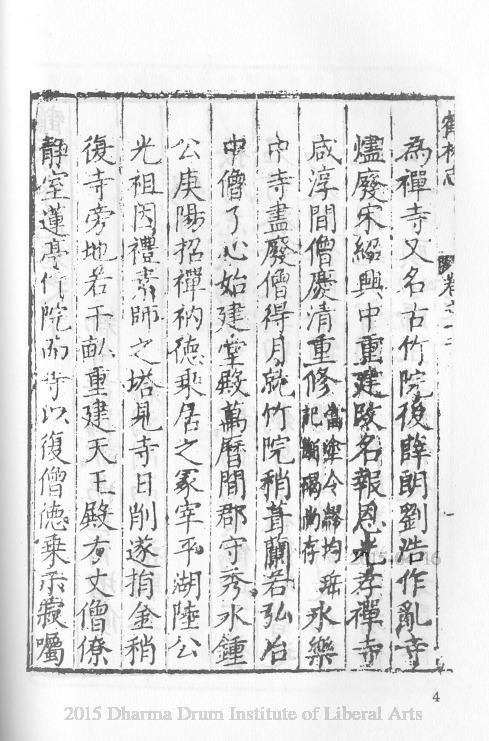 鶴林志 卷之一 一
為禪寺又名古竹院後薛朗劉浩作亂寺
燼廢宋紹興中重建改名報恩光孝禪寺
咸淳間僧慶清重修當塗令繆均珤記斷碣尚存永樂
中寺盡廢僧得月就竹院稍葺蘭若弘治
中僧了心始建堂殿萬曆間郡守秀水鍾
公庚陽招禪衲德乘居之冢宰平湖陸公
光祖因禮素師之塔見寺日削遂捐金稍
復寺旁地若干畝重建天王殿方丈僧寮
靜室蓮亭竹院而寺以復僧德乘示寂囑
4
2015 Dharma Drum Institute of Liberal Arts